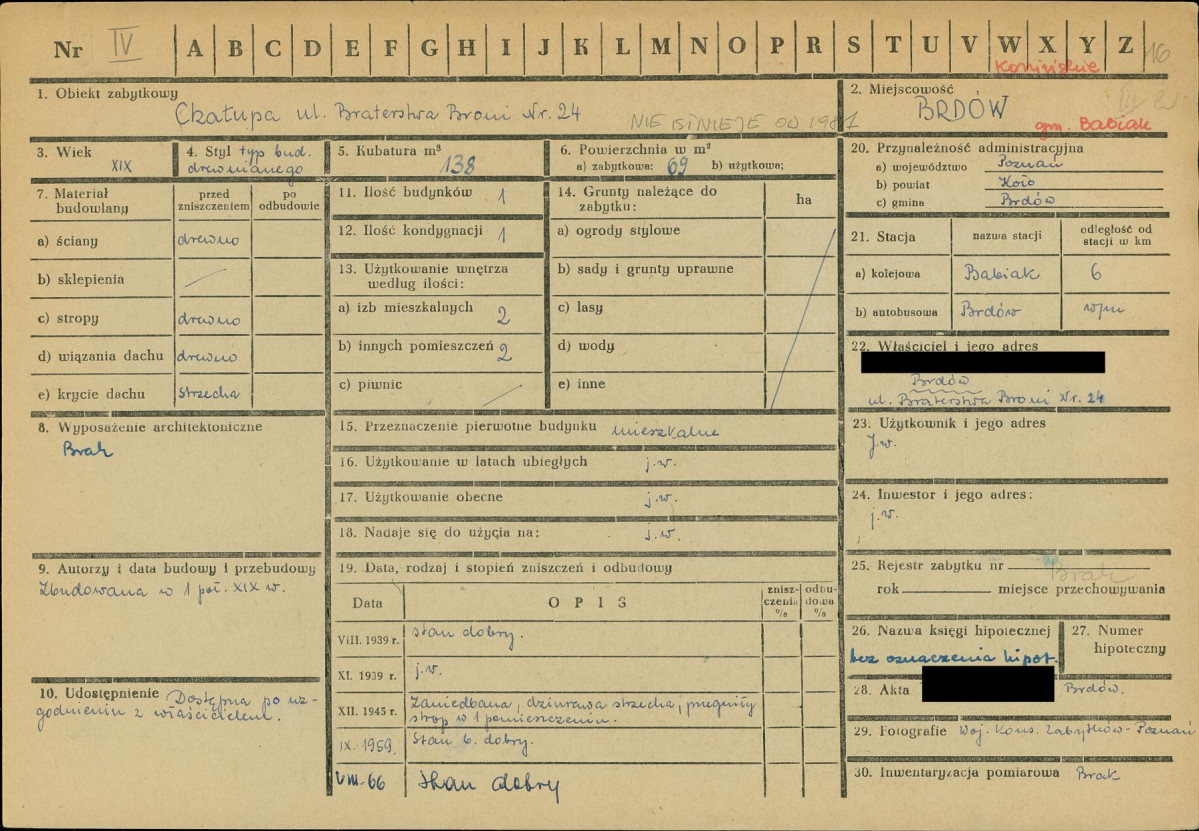 Nr IV A B C D E F G H I J K L M N O P R S T U V W X Y Z 16
Konińskie
1. Obiekt zabytkowy
Chałupa ul. Braterstwa Broni Nr. 24
NIE ISTNIEJE OD 1981
2. Miejscowość
BRDÓW
gm. Babiak
3. Wiek
XIX
4. Styl typ bud.
drewnianego
5. Kubatura m³
138
6. Powierzchnia w m²
a) zabytkowa: 69 b) użytkowa:
7. Materiał
budowlany
przed
zniszczeniem
po
odbudowie
a) ściany drewno
b) sklepienia —
c) stropy drewno
d) wiązania dachu drewno
e) krycie dachu strzecha
8. Wyposażenie architektoniczne
Brak
9. Autorzy i data budowy i przebudowy
Zbudowana w 1 poł. XIX w.
10. Udostępnienie Dostępna po uz-
godnieniu z właścicielem.
11. Ilość budynków 1
12. Ilość kondygnacji 1
13. Użytkowanie wnętrza
według ilości:
a) izb mieszkalnych 2
b) innych pomieszczeń 2
c) piwnic —
14. Grunty należące do
zabytku:
ha
a) ogrody stylowe
b) sady i grunty uprawne
c) lasy
d) wody
e) inne
15. Przeznaczenie pierwotne budynku mieszkalne
16. Użytkowanie w latach ubiegłych j.w.
17. Użytkowanie obecne j.w.
18. Nadaje się do użycia na: j.w.
19. Data, rodzaj i stopień zniszczeń i odbudowy
Data
OPIS
znisz-
czenia
%
odbu-
dowa
%
VIII. 1939 r. stan dobry.
XI. 1939 r. j.w.
XII. 1945 r. Zaniedbana, dziurawa strzecha, przegniły
strop w 1 pomieszczeniu.
IX. 1959. Stan b. dobry.
VIII-66 Stan dobry
20. Przynależność administracyjna
a) województwo Poznań
b) powiat Koło
c) gmina Brdów
21. Stacja
nazwa stacji
odległość od
stacji w km
a) kolejowa Babiak 6
b) autobusowa Brdów w/m
22. Właściciel i jego adres
Brdów
ul. Braterstwa Broni Nr. 24
23. Użytkownik i jego adres
J.w.
24. Inwestor i jego adres:
j.w.
25. Rejestr zabytku nr Brak
rok miejsce przechowywania
26. Nazwa księgi hipotecznej
bez oznaczenia hipot.
27. Numer
hipoteczny
28. Akta Brdów.
29. Fotografie Woj. Kons. Zabytków - Poznań
30. Inwentaryzacja pomiarowa Brak